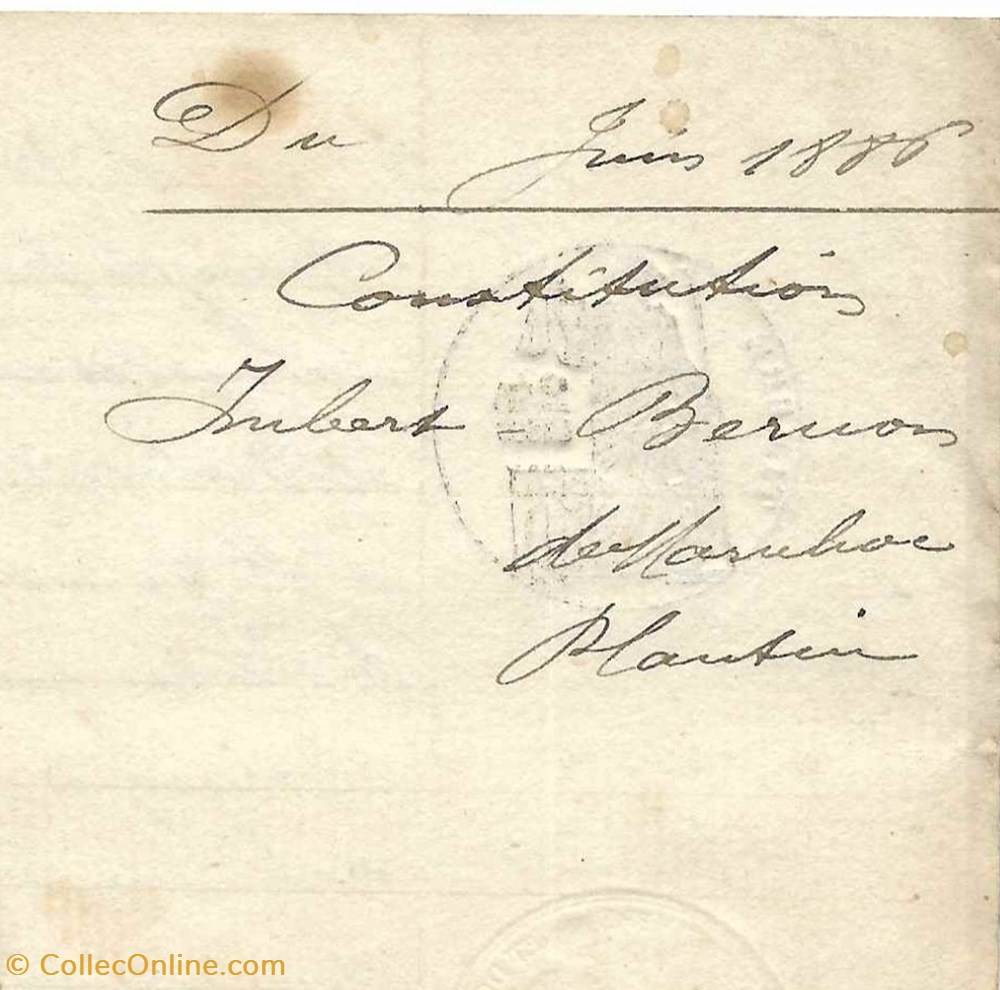 Du Juin 1886
Constitution
Imbert - Bernon
de
Plantin
© CollecOnline.com